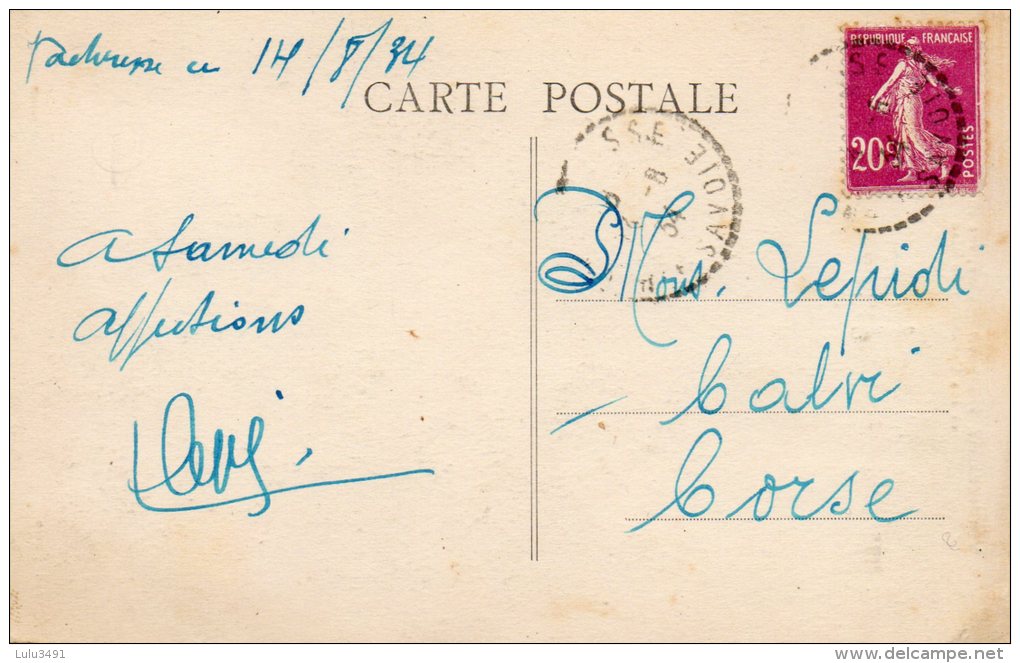 14/8/34
CARTE POSTALE
REPUBLIQUE FRANÇAISE
20c
POSTES
SAVOIE
A Samedi
affections
Mons. Lepidi
Calvi
Corse
Lulu3491
www.delcampe.net